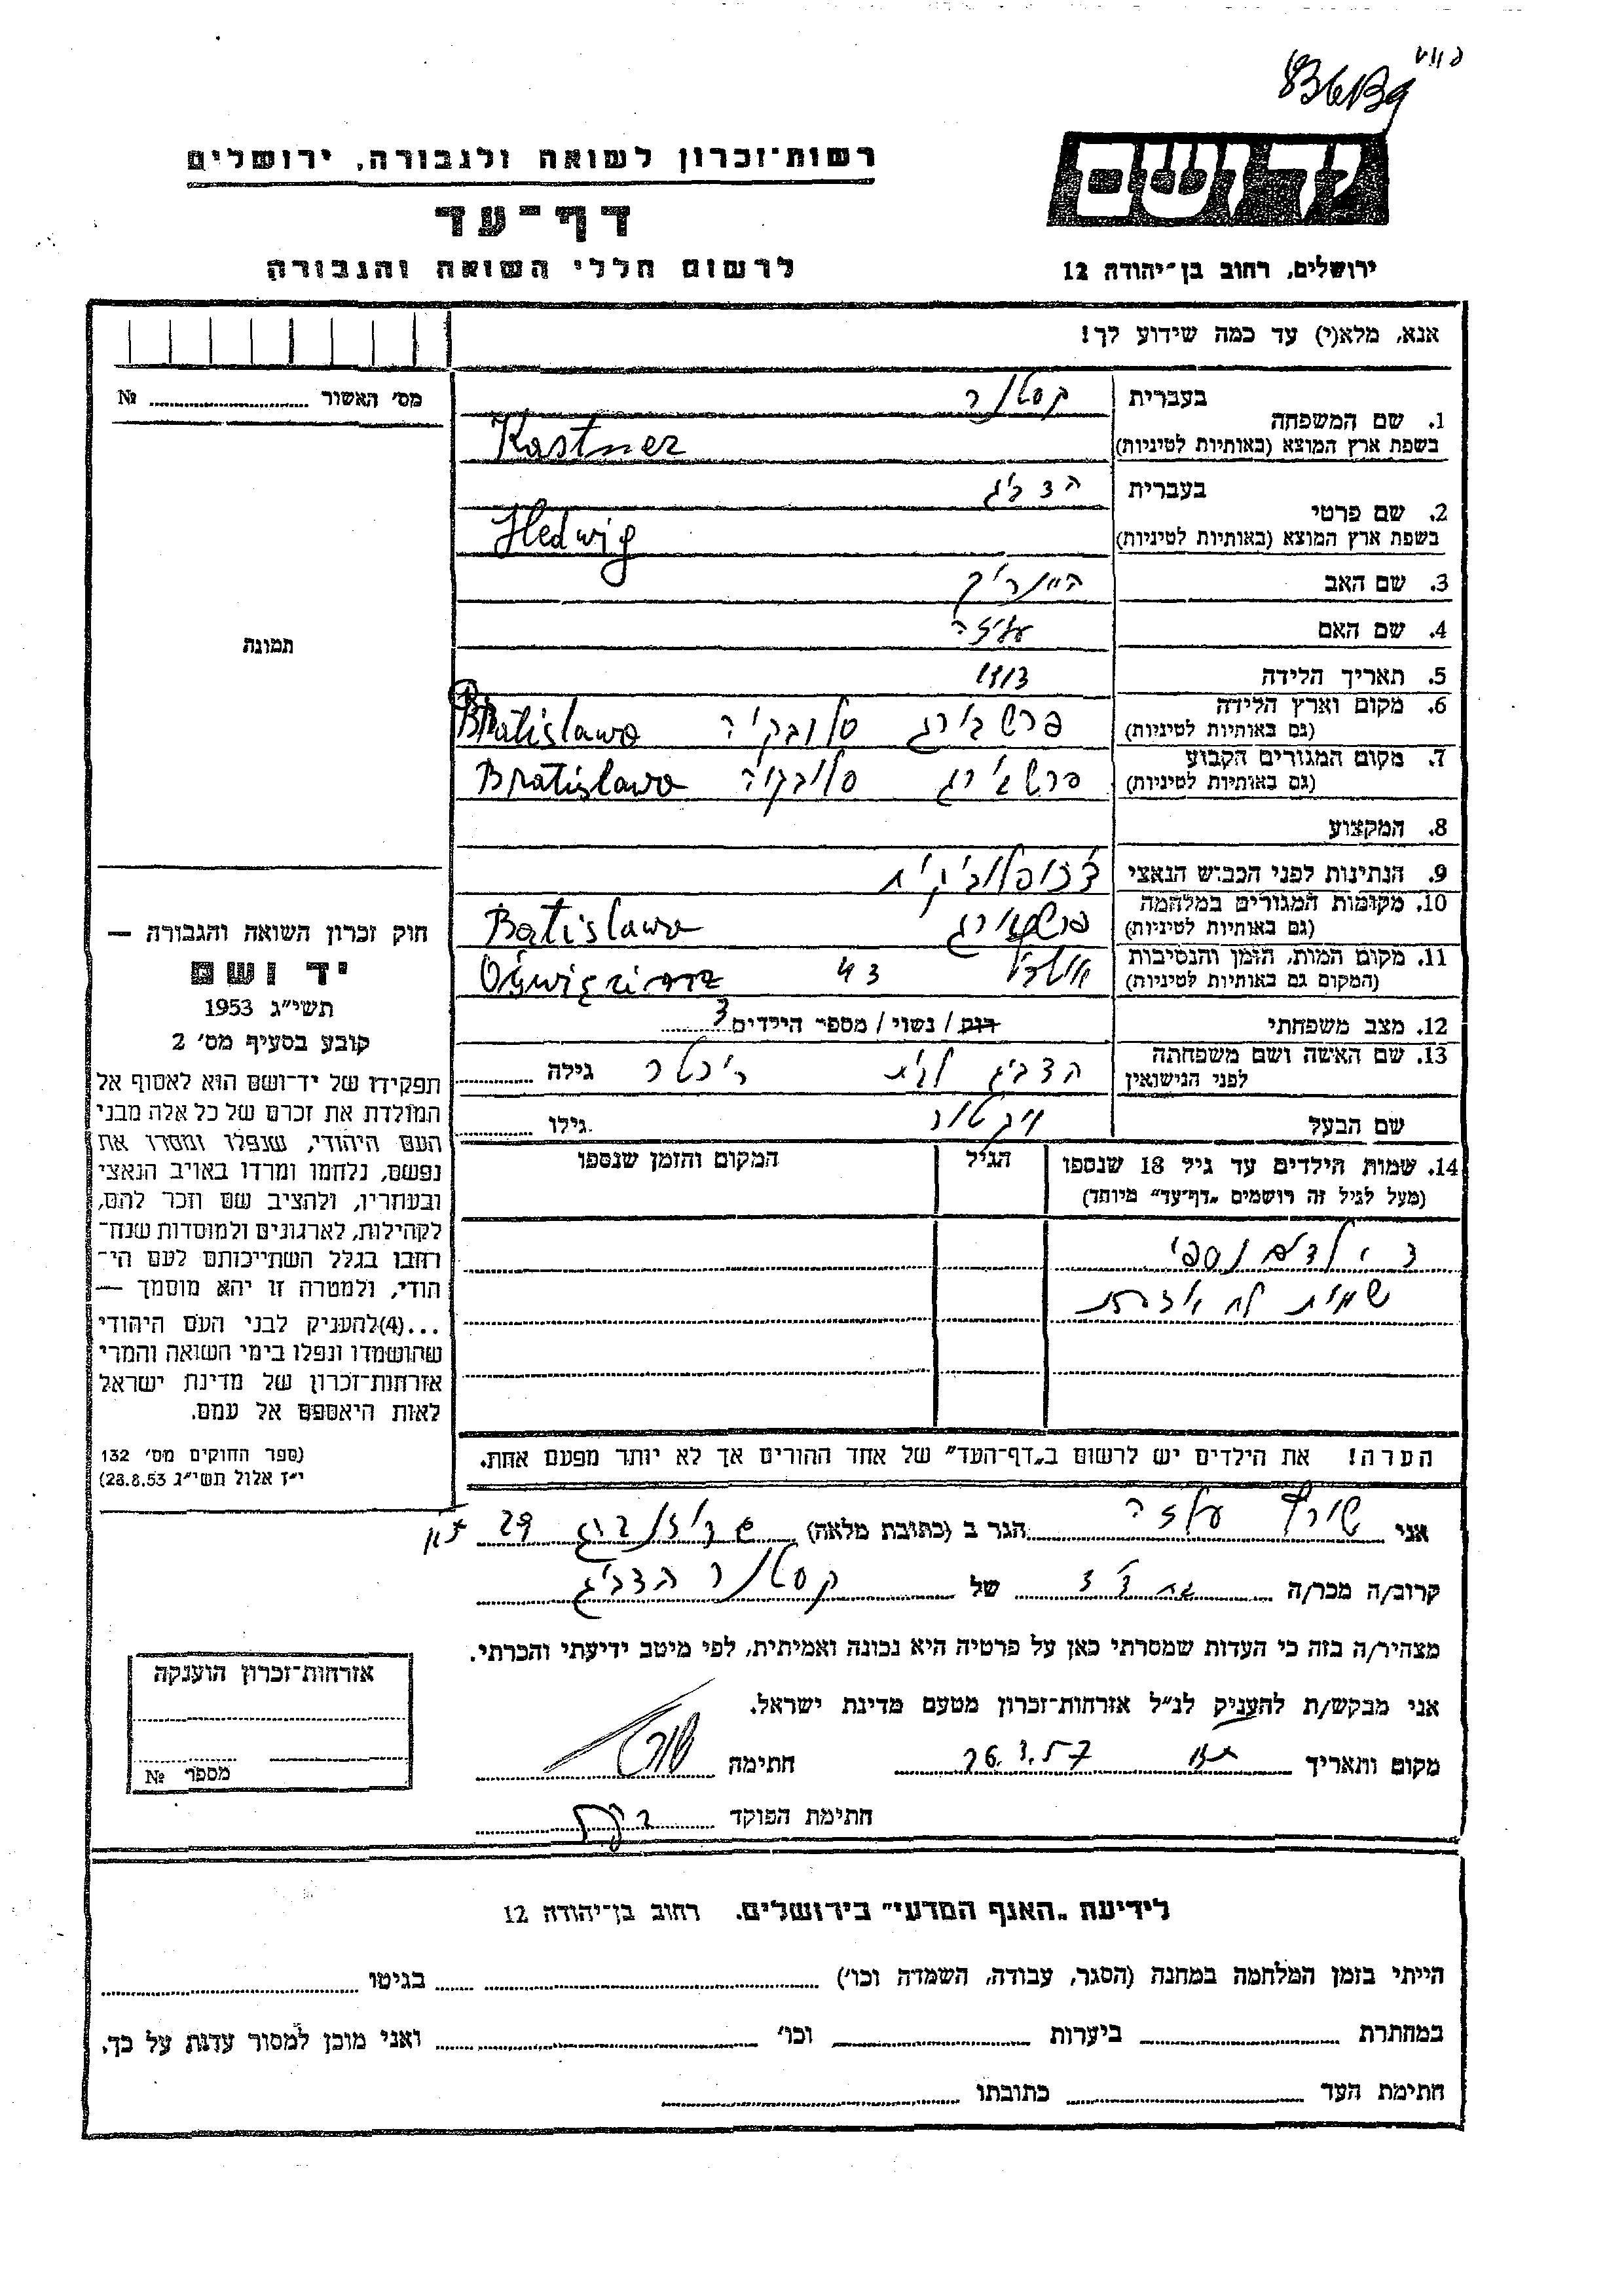 יד ושם
רשות־זכרון לשואה ולגבורה, ירושלים
דף־עד
לרשום חללי השואה והגבורה
ירושלים, רחוב בן־יהודה 12
אנא, מלא(י) עד כמה שידוע לך!
מס' האשור № 
1. שם המשפחה
בעברית קסטנר
בשפת ארץ המוצא (באותיות לטיניות) Kastner
2. שם פרטי
בעברית הדביג
בשפת ארץ המוצא (באותיות לטיניות) Hedwig
3. שם האב היינריך
4. שם האם עליזה
5. תאריך הלידה 1913
6. מקום וארץ הלידה
(גם באותיות לטיניות) פרשבורג סלובקיה Bratislawa
7. מקום המגורים הקבוע
(גם באותיות לטיניות) פרשבורג סלובקיה Bratislawa
8. המקצוע
9. הנתינות לפני הכבוש הנאצי
10. מקומות המגורים במלחמה
(גם באותיות לטיניות) פרשבורג Batislawa
11. מקום המות, הזמן והנסיבות
(המקום גם באותיות לטיניות) 43
12. מצב משפחתי רוק / נשוי / מספר הילדים 3
13. שם האשה ושם משפחתה
לפני הנישואין הדביג לבית גילה
שם הבעל ויקטור גילו
14. שמות הילדים עד גיל 18 שנספו
(מעל לגיל זה רושמים „דף־עד" מיוחד)
הגיל
המקום והזמן שנספו
3 ילדים נספו
שמות לא
הערה! את הילדים יש לרשום ב„דף־העד" של אחד ההורים אך לא יותר מפעם אחת.
תמונה
חוק זכרון השואה והגבורה —
יד ושם
תשי"ג 1953
קובע בסעיף מס' 2
תפקידו של יד־ושם הוא לאסוף אל
המולדת את זכרם של כל אלה מבני
העם היהודי, שנפלו ומסרו את
נפשם, נלחמו ומרדו באויב הנאצי
ובעוזריו, ולהציב שם וזכר להם,
לקהילות, לארגונים ולמוסדות שנח־
רבו בגלל השתייכותם לעם הי־
הודי, ולמטרה זו יהא מוסמך —
...(4) להעניק לבני העם היהודי
שהושמדו ונפלו בימי השואה והמרי
אזרחות־זכרון של מדינת ישראל
לאות היאספם אל עמם.
(ספר החוקים מס' 132
י"ז אלול תשי"ג 28.8.53)
אני עליזה הגר ב (כתובת מלאה) 29
קרוב/ה מכר/ה של קסטנר הדביג
מצהיר/ה בזה כי העדות שמסרתי כאן על פרטיה היא נכונה ואמיתית, לפי מיטב ידיעתי והכרתי.
אני מבקש/ת להעניק לנ"ל אזרחות־זכרון מטעם מדינת ישראל.
מקום ותאריך 26.3.57 חתימה
חתימת הפוקד
אזרחות־זכרון הוענקה
מספר №
לידיעת „האגף המדעי" בירושלים. רחוב בן־יהודה 12
הייתי בזמן המלחמה במחנה (הסגר, עבודה, השמדה וכו') בגיטו
במחתרת ביערות וכו' ואני מוכן למסור עדות על כך.
חתימת העד כתובתו